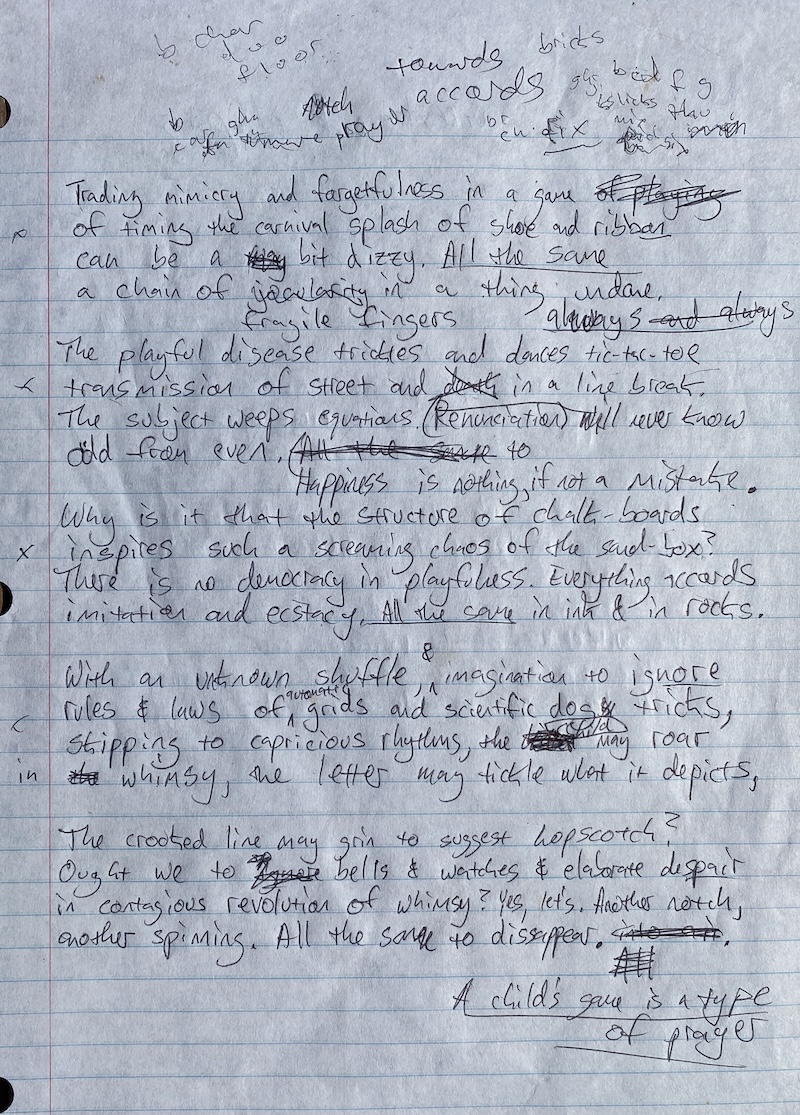 b char
d o o
floor
towards bricks
accords
notch
prayer
Trading mimicry and forgetfulness in a game of playing
of timing the carnival splash of shoe and ribbon
can be a bit dizzy. All the same
a chain of jocularity in a thing undone.
fragile fingers always and always
The playful disease trickles and dances tic-tac-toe
transmission of street and death in a line break.
The subject weeps equations. (Renunciation) will never know
odd from even. (All the same to
Happiness is nothing, if not a mistake.
Why is it that the structure of chalk-boards
x inspires such a screaming chaos of the sand-box?
There is no democracy in playfulness. Everything accords
imitation and ecstacy. All the same in ink & in rocks.
With an unknown shuffle, & imagination to ignore
rules & laws of automated grids and scientific dog tricks,
skipping to capricious rhythms, the child may roar
in the whimsy, the letter may tickle what it depicts,
The crooked line may grin to suggest hopscotch?
Ought we to ignore bells & watches & elaborate despair
in contagious revolution of whimsy? Yes, let's. Another notch,
another spinning. All the same to dissappear. into air.
A child's game is a type
of prayer